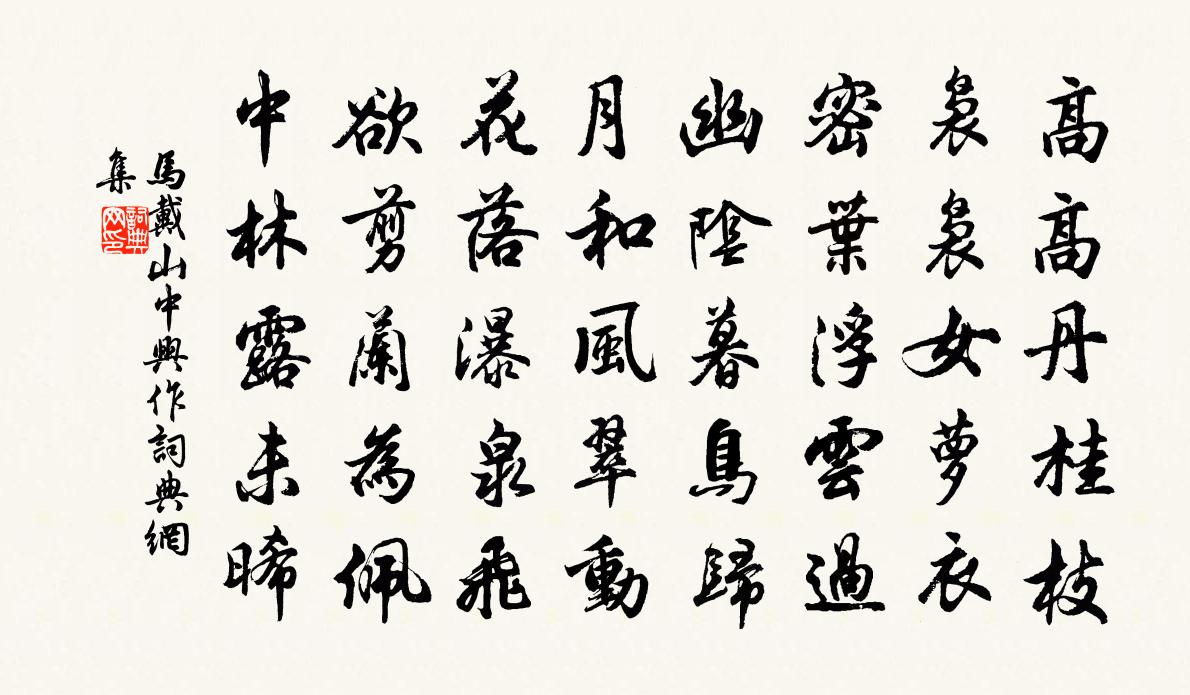 高高丹桂枝
袅袅女萝衣
密葉浮雲過
幽陰暮鳥歸
月和風翠動
花落瀑泉飛
欲剪蘭為佩
中林露未晞
馬戴山中興作詞典網
集
詞典
网印